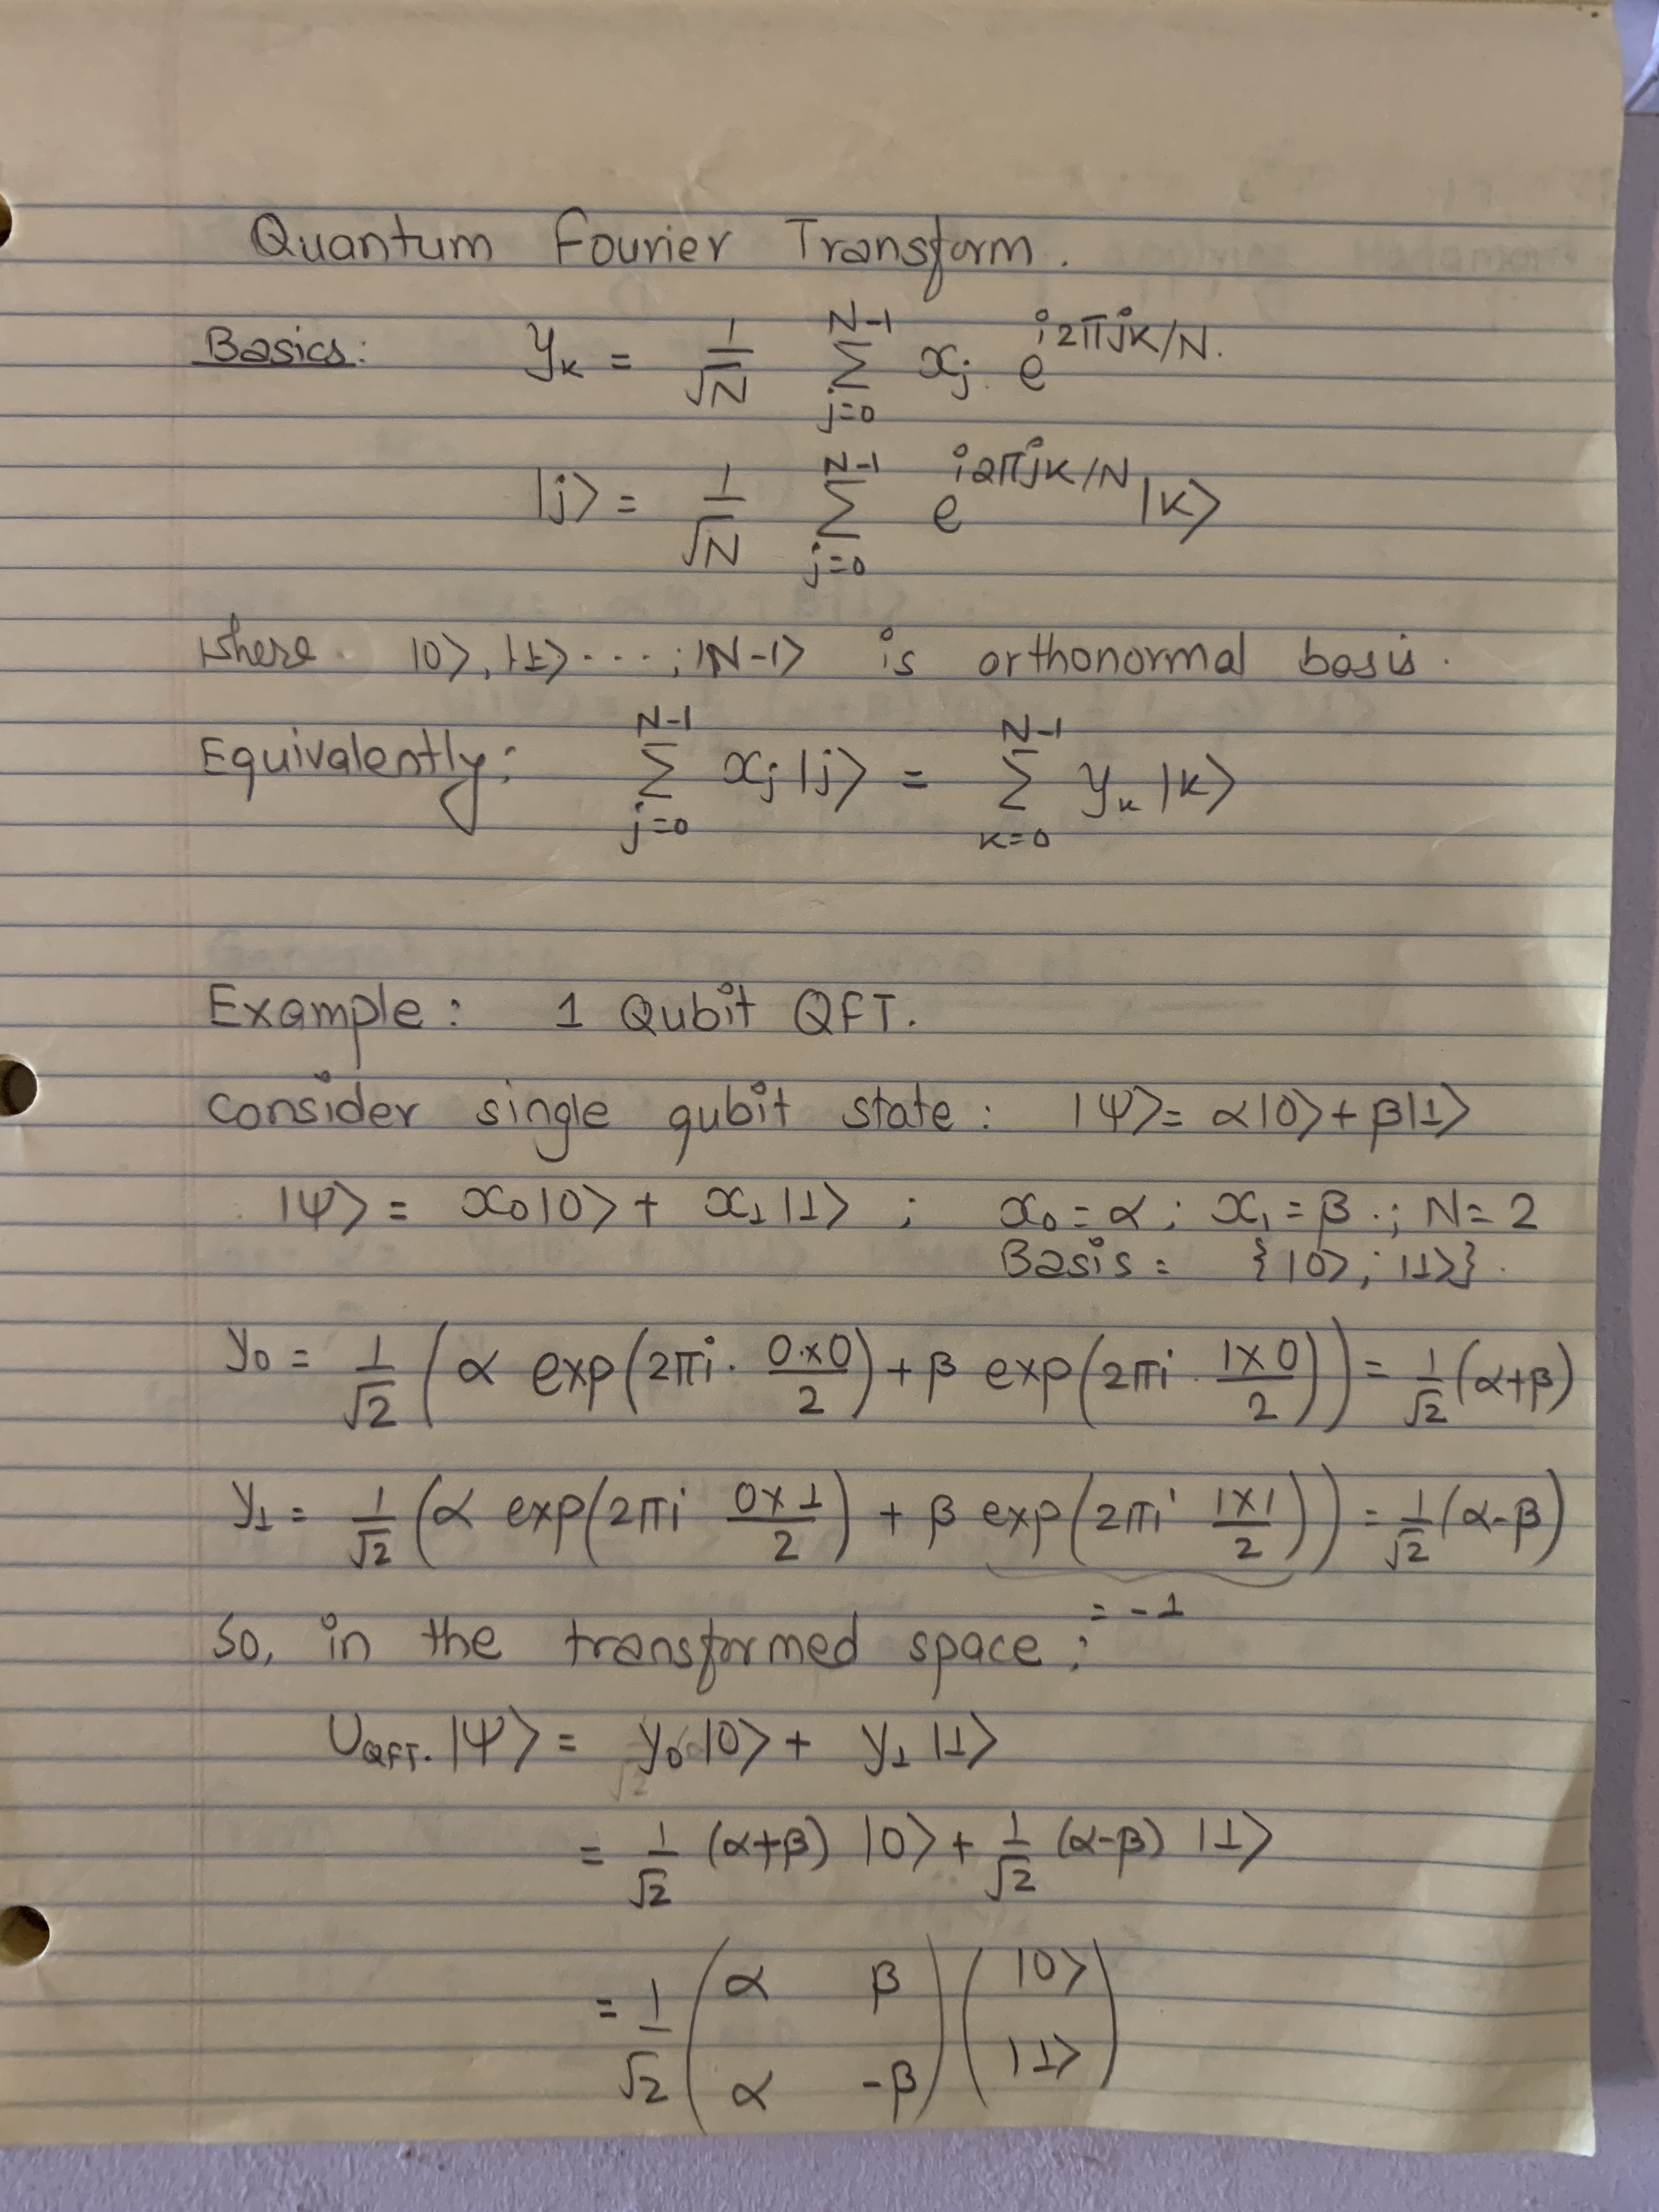 Quantum Fourier Transform.
Basics: y_k = 1/√N Σ_{j=0}^{N-1} x_j e^{i2πjk/N}.
|j⟩ = 1/√N Σ_{j=0}^{N-1} e^{i2πjk/N} |k⟩
where |0⟩, |1⟩ ....; |N-1⟩ is orthonormal basis.
Equivalently: Σ_{j=0}^{N-1} x_j |j⟩ = Σ_{k=0}^{N-1} y_k |k⟩
Example: 1 Qubit QFT.
consider single qubit state: |ψ⟩ = α|0⟩ + β|1⟩
|ψ⟩ = x_0 |0⟩ + x_1 |1⟩ ; x_0 = α ; x_1 = β ; N = 2
Basis = {|0⟩; |1⟩}.
y_0 = 1/√2 (α exp(2πi · 0×0/2) + β exp(2πi · 1×0/2)) = 1/√2 (α+β)
y_1 = 1/√2 (α exp(2πi 0×1/2) + β exp(2πi 1×1/2)) = 1/√2 (α-β)
= -1
So, in the transformed space;
U_QFT. |ψ⟩ = y_0 |0⟩ + y_1 |1⟩
= 1/√2 (α+β) |0⟩ + 1/√2 (α-β) |1⟩
= 1/√2 (α β) (|0⟩)
(α -β) (|1⟩)